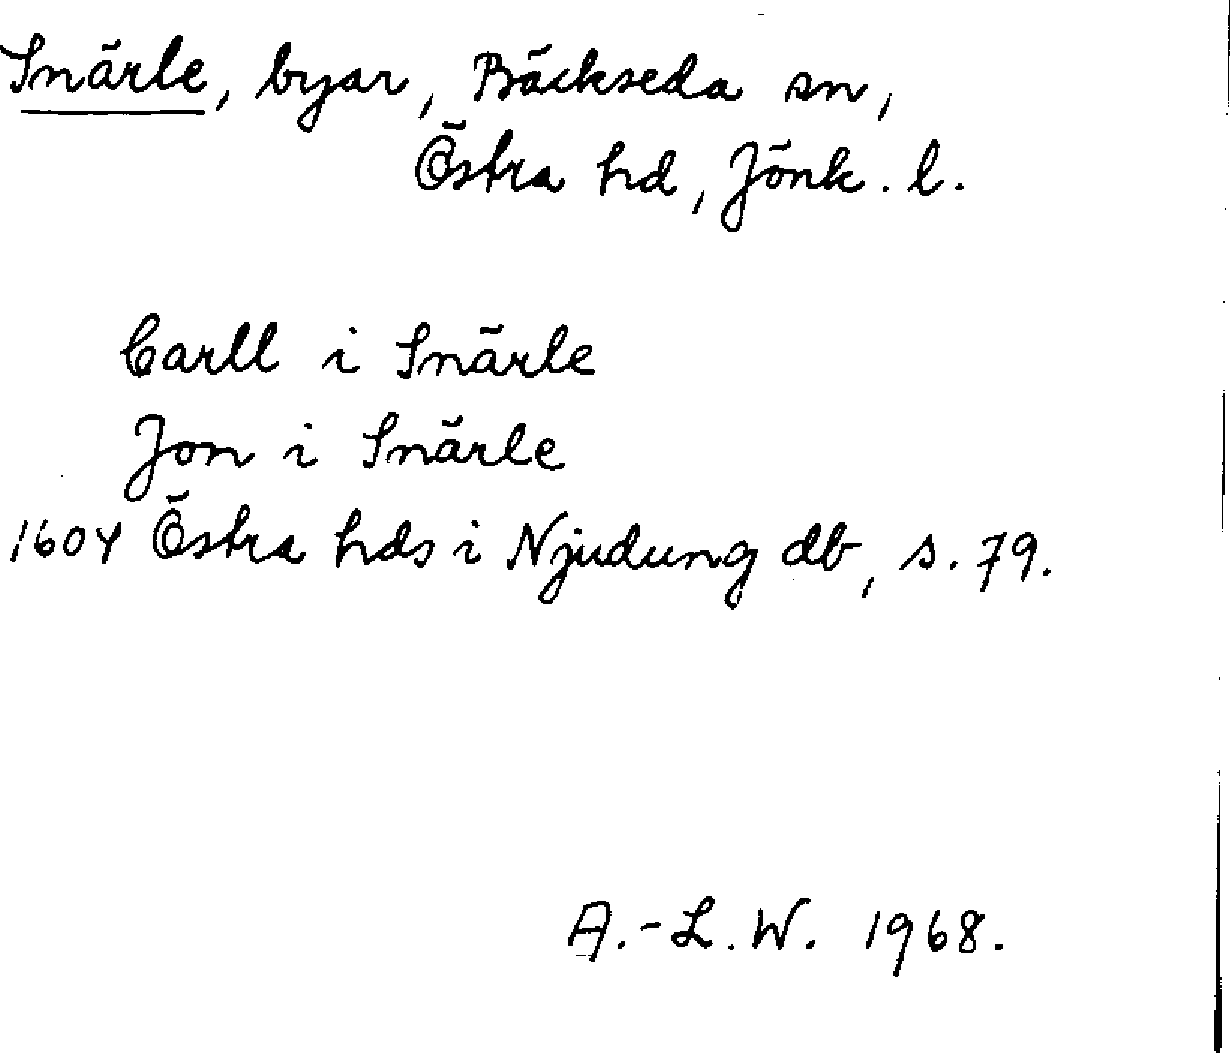 Snärle, byar, Bäckseda sn,
Östra hd, Jönk. l.
Carll i Snärle
Jon i Snärle
1604 Östra hds i Njudung db, s. 79.
A.-L. W. 1968.